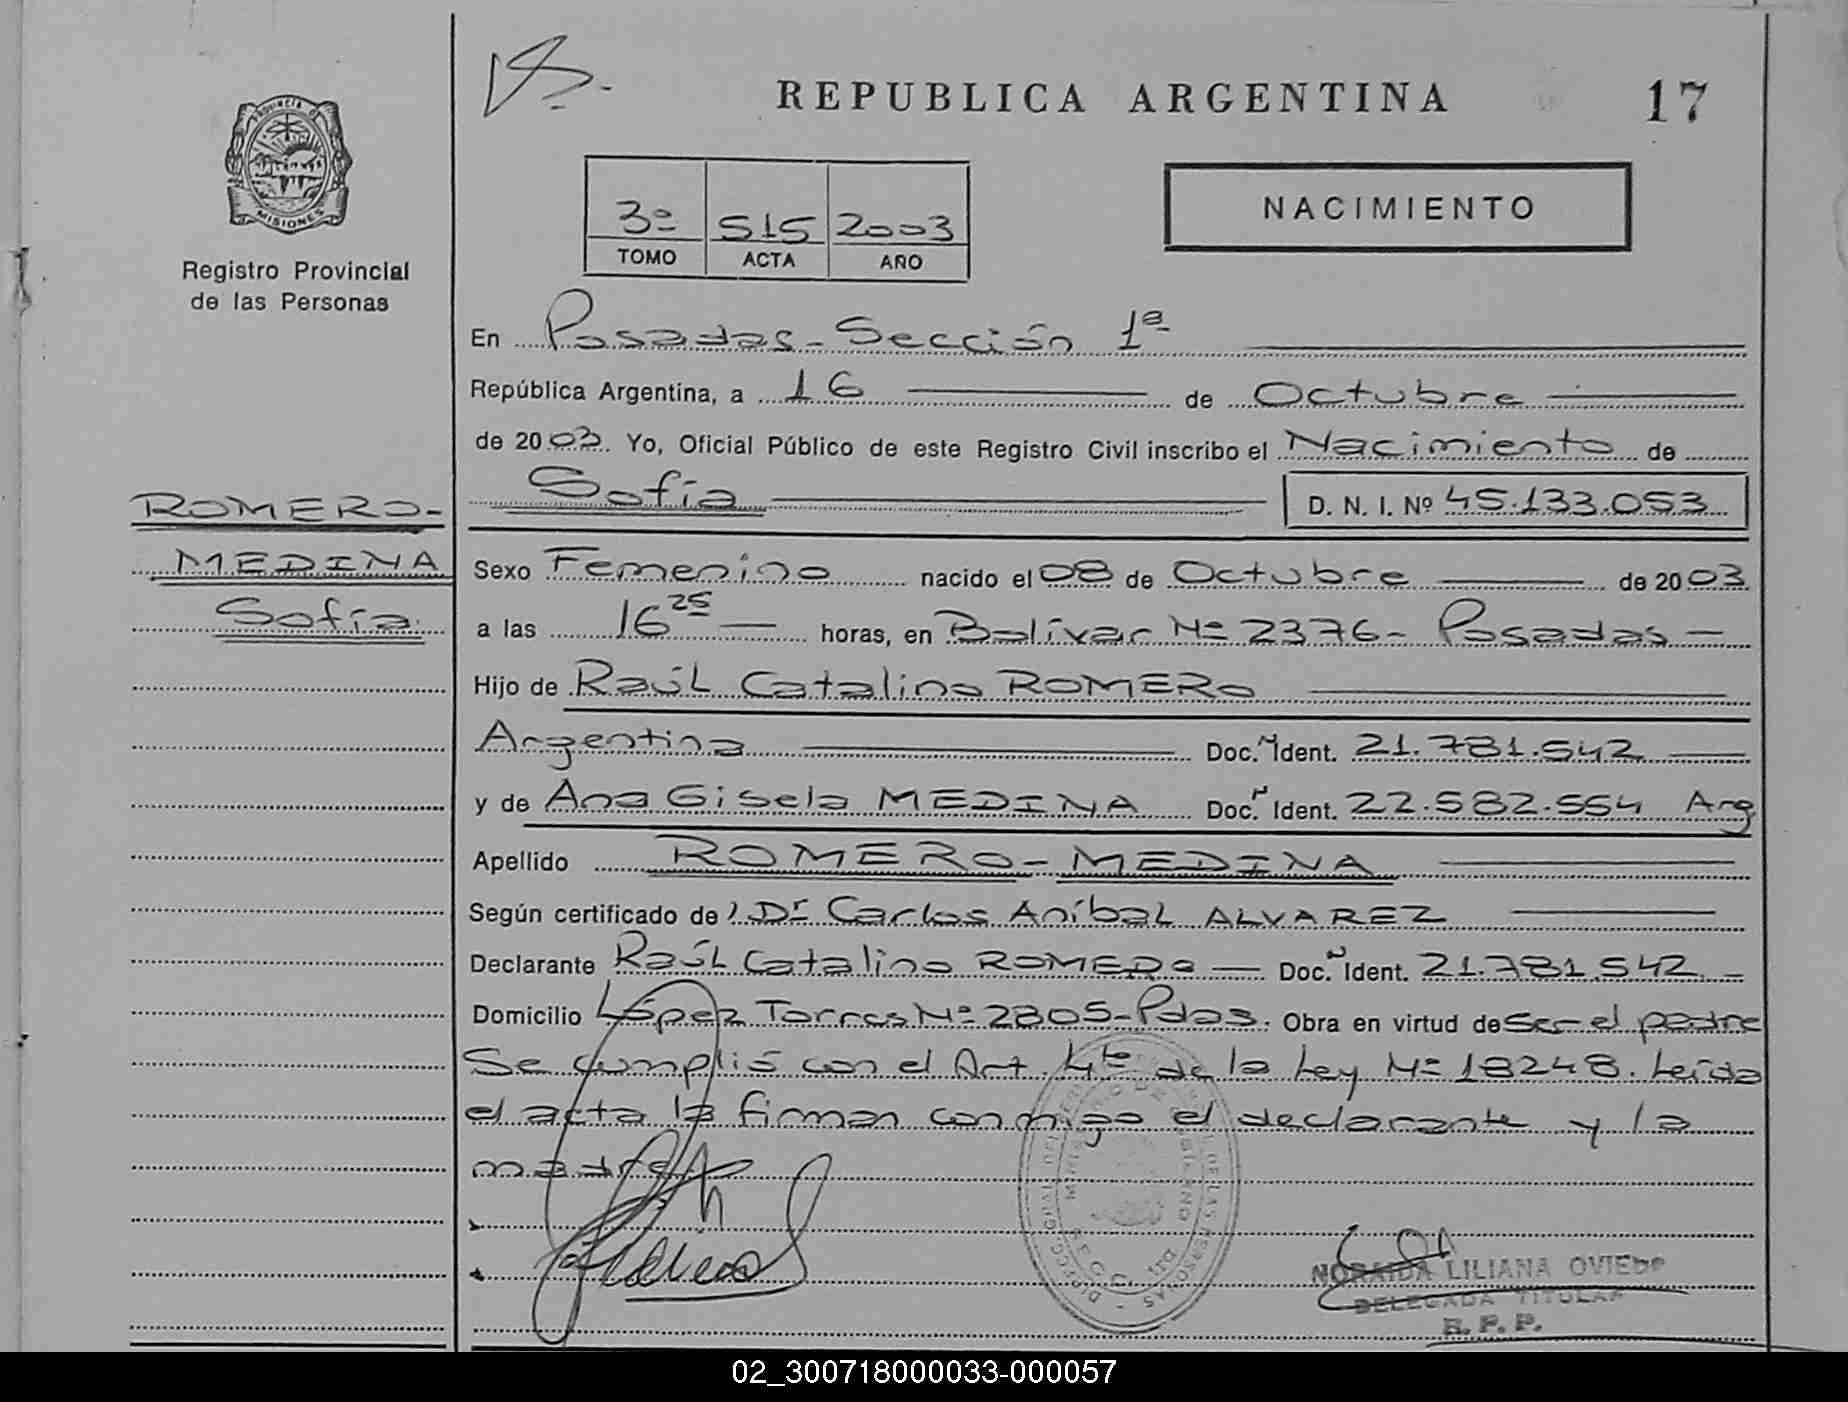 REPUBLICA ARGENTINA
17
PROVINCIA DE
MISIONES
Registro Provincial
de las Personas
3º 515 2003
TOMO ACTA AÑO
NACIMIENTO
En Posadas - Sección 1ª
República Argentina, a 16 de Octubre
de 2003. Yo, Oficial Público de este Registro Civil inscribo el Nacimiento de
Sofía D. N. I. Nº 45.133.053
ROMERO-
MEDINA
Sofía
Sexo Femenino nacido el 08 de Octubre de 2003
a las 16 25 horas, en Bolívar Nº 2376 - Posadas
Hijo de Raúl Catalino ROMERO
Argentina Doc. Ident. 21.781.542
y de Ana Gisela MEDINA Doc. Ident. 22.582.554 Arg
Apellido ROMERO - MEDINA
Según certificado de Dr Carlos Aníbal ALVAREZ
Declarante Raúl Catalino ROMERO Doc. Ident. 21.781.542
Domicilio López Torres Nº 2805 - Pdas. Obra en virtud de ser el padre
Se cumplió con el Art. 4to de la Ley Nº 18248. Leída
el acta la firman conmigo el declarante y la
madre
NORAIDA LILIANA OVIEDO
DELEGADA TITULAR
R. P. P.
02_300718000033-000057